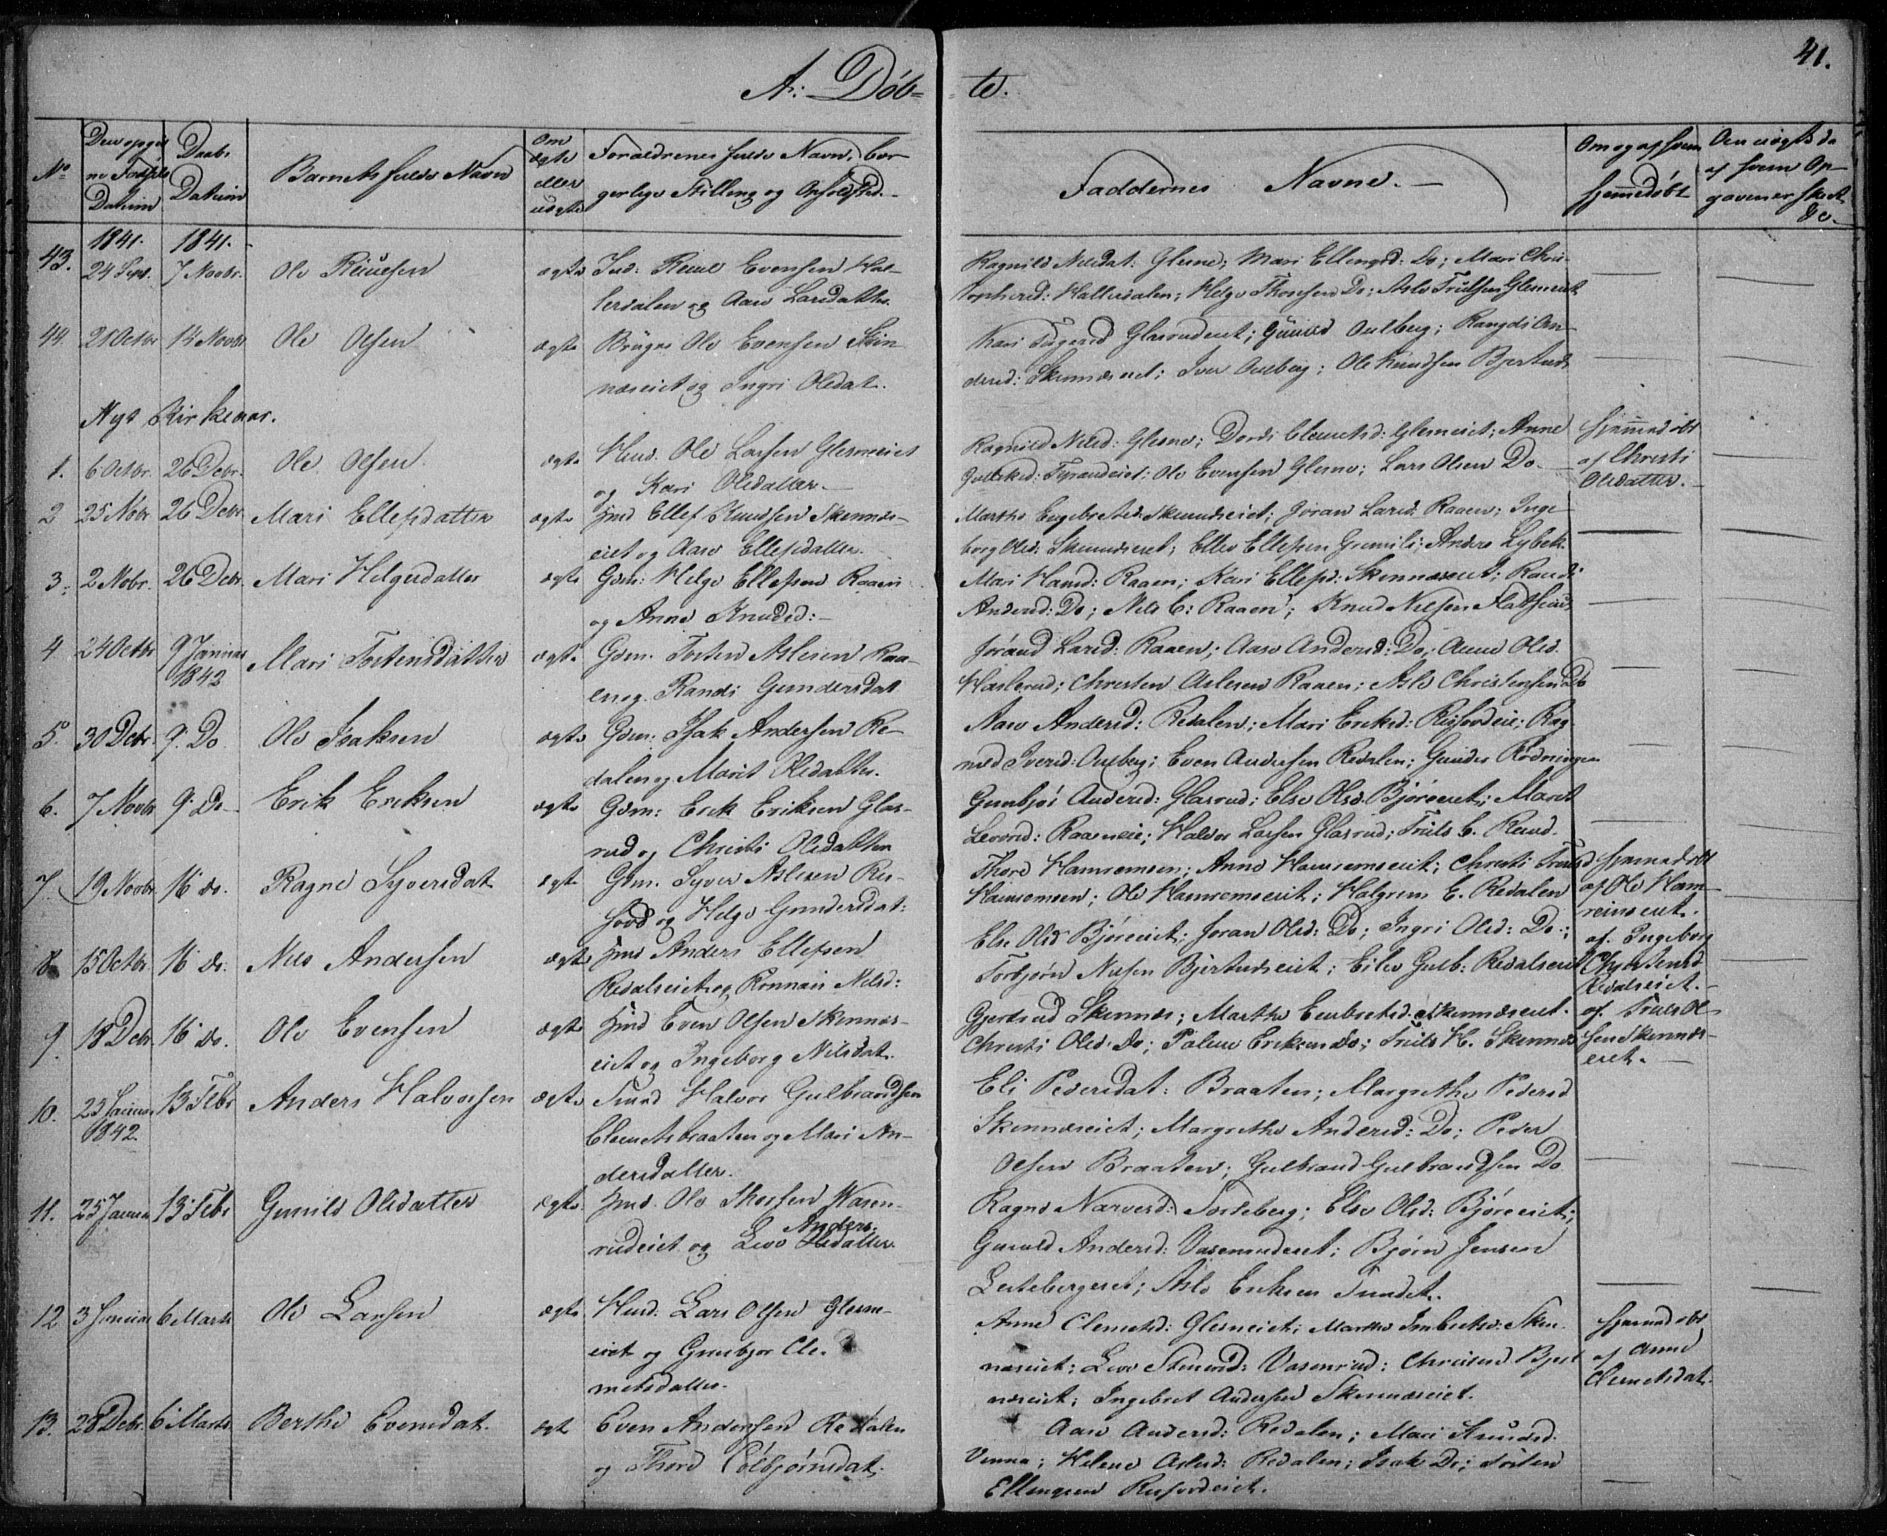 41.
A: Døb-
te.
No
Den opgiv-
ne Fødsels
Datum
Daabs
Datum
Barnets fulde Navn
Om
ægte
eller
uægte
Forældrenes fulde Navn, bor-
gerlige Stilling og Opholdsted.
Faddernes Navne.
Om og af hvem
hjemmedøbt
Om uægte da
af hvem Op-
gaven er skeet
&c.
1841. 1841.
43. 24 Sept. 7 Novbr. Ole Reiersen ægte Evensen Hal-
lersdalen og Aase Larsdatter
Ragnild Nilsdat: Glesne; Mari Ellingsd: Do; Mari Chri-
stophersd: Hallersdalen; Helge Thorsen Do; Asle Trulsen Glesneeiet
44. 21 Octbr 14 Novbr Ole Olsen ægte Brugm Ole Evensen Skin-
næseiet og Ingri Olsdat.
Kari Glasrudeiet; Gunild Aulberg; Rangdi An-
dersd: Skinnæseiet; Iver Aulberg; Ole Knudsen Bjertnæs
Nyt Kirkeaar.
1. 6 Octbr. 26 Debr. Ole Olsen ægte Huusd. Ole Larsen Glesneeiet
og Kari Olsdatter.
Ragnild Nilsd: Glesne; Dordi Clemetsd: Glesneeiet; Anne
Ole Evensen Glesne; Lars Olsen Do.
Hjemmedøbt
af Christi
Olsdatter.
2 25 Nobr 26 Debr Mari Ellefsdatter ægte Hmd Ellef Knudsen Skinnæs-
eiet og Aase Ellefsdatter.
Marthe Engebretsd Skinnæseiet; Jøran Larsd: Raaen; Inge-
borg Olsd: Skinnæseiet; Ellev Ellefsen Anders Lybek.
3. 2 Nobr. 26 Debr. Mari Helgesdatter ægte Gdm: Helge Ellefsen Raaen
og Anne Knudsd:
Mari Hansd: Raaen; Kari Ellefsd: Skinnæseiet; Randi
Andersd: Do; Nils E: Raaen; Knud Nilsen
4 24 Octbr 9 Januar
1842 Mari Tostensdatter ægte Gdm. Tosten Aslesen Raa-
en og Randi Gundersdat
Jørand Larsd: Raaen; Aase Andersd: Do; Anne Olsd.
Haslerud; Christen Aslesen Raaen; Asle Christensen Do
5. 30 Debr. 9. Do. Ole Isaksen ægte Gdm: Isak Andersen Re-
dalen og Marit Olsdatter.
Aase Andersd: Redalen; Mari Eriksd: Rag-
nild Iversd: Aulberg; Even Andersen Redalen; Gunder Rødningen
6. 7 Novbr 9. Do Erik Eriksen ægte Gdm: Erik Eriksen Glas-
rud og Christi Olsdatter
Gunbjør Andersd: Glasrud; Else Olsd. Bjøreeiet; Marit
Raaeneie; Halvor Larsen Glasrud; Truls
7. 19 Novbr 16 do. Ragne Syversdat ægt Gdm. Syver Aslesen Ris-
ford og Helge Gundersdat:
Thore Hamremoen; Anne Hamremoeiet; Christi
Hamremoen; Ole Hamremoeiet; Halgrim E. Redalen
Hjemmedøbt
af Ole Ham-
remoeiet.
8. 15 Octbr 16 do. Nils Andersen ægte Hmd Anders Ellefsen
Redalseiet og Rønnau Nilsd:
Else Olsd Bjøreeiet; Jøran Olsd: Do; Ingri Olsd: Do.;
Torbjørn Nilsen Bjertnæseiet; Eilev Gulb: Redalseiet
af Ingeborg
Christensd
Redalseiet.
9. 18 Debr 16 do. Ole Evensen ægte Hmd Even Olsen Skinnæs-
eiet og Ingeborg Nilsdat.
Gjertrud Skinnæs; Marthe Embretsd. Skinnæseiet.
Christi Olsd. Do; Palme Eriksen do; Truls H. Skinnæs
af Truls Ol-
sen Skinnæs-
eiet.
10. 23 Januar
1842. 13 Febr Anders Halvorsen ægte Halvor Gulbrandsen
Clemetsbraaten og Mari An-
dersdatter.
Eli Pedersdat: Braaten; Margrethe Pedersd
Skinnæseiet; Margrethe Andersd: Do; Peder
Olsen Braaten; Gulbrand Gulbrandsen Do
11. 25 Januar 13 Febr Gunild Olsdatter ægte Hmd. Ole Wasen-
rudeiet og Live Anders-
datter
Ragne Narvesd: Sorteberg; Else Olsd: Bjøreeiet;
Gunild Andersd: Vasenrudeiet; Bjørn Jensen
Asle Eriksen
12. 3 Januar 6 Marts Ole Larsen ægte Huusd. Lars Olsen Glesne-
eiet og Gunbjør Cle-
metsdatter.
Anne Clemetsd: Glesneeiet; Marthe Imbretsd: Skin-
næseiet; Live Vasenrud; Bjert-
næseiet; Ingebret Andersen Skinnæseiet.
Hjemmedøbt
af Anne
Clemetsdat.
13. 28 Debr. 6 Marts Berthe Evensdat. ægt Even Andersen Redalen
og Thore Colbjørnsdat.
Aase Andersd: Redalen; Mari Knudsd.
Helene Aslesd: Redalen; Isak Do; Tosten
Ellingsen